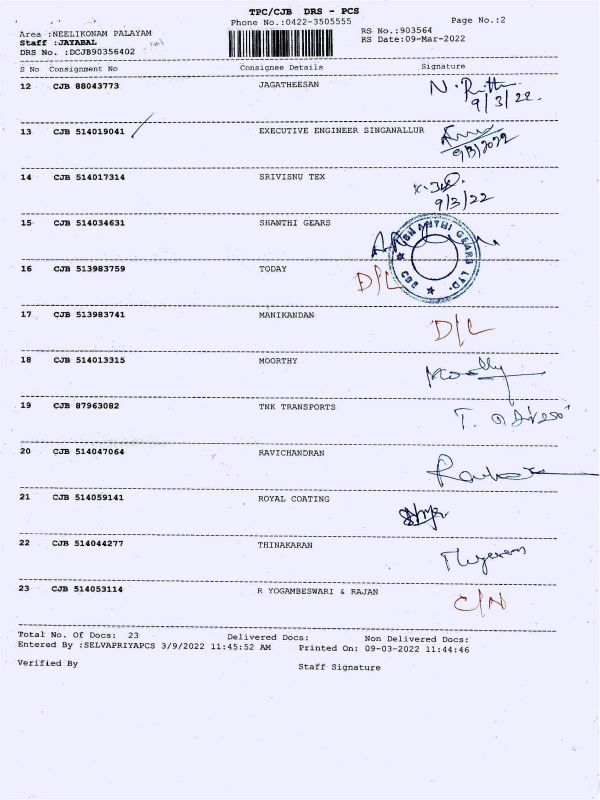 TPC/CJB DRS - PCS
Phone No.:0422-3505555 Page No.:2
Area :NEELIKONAM PALAYAM RS No.:903564
Staff :JAYABAL RS Date:09-Mar-2022
DRS No. :DCJB90356402
S No Consignment No Consignee Details Signature
12 CJB 88043773 JAGATHEESAN N.
9/3/22.
13 CJB 514019041 EXECUTIVE ENGINEER SINGANALLUR
9/3/2022
14 CJB 514017314 SRIVISNU TEX
9/3/22
15 CJB 514034631 SHANTHI GEARS
SHANTHI GEARS LTD. CBE
16 CJB 513983759 TODAY D/L
17 CJB 513983741 MANIKANDAN D/L
18 CJB 514013315 MOORTHY
19 CJB 87963082 TNK TRANSPORTS T.
20 CJB 514047064 RAVICHANDRAN
21 CJB 514059141 ROYAL COATING
22 CJB 514044277 THINAKARAN
23 CJB 514053114 R YOGAMBESWARI & RAJAN C/N
Total No. Of Docs: 23 Delivered Docs: Non Delivered Docs:
Entered By :SELVAPRIYAPCS 3/9/2022 11:45:52 AM Printed On: 09-03-2022 11:44:46
Verified By Staff Signature